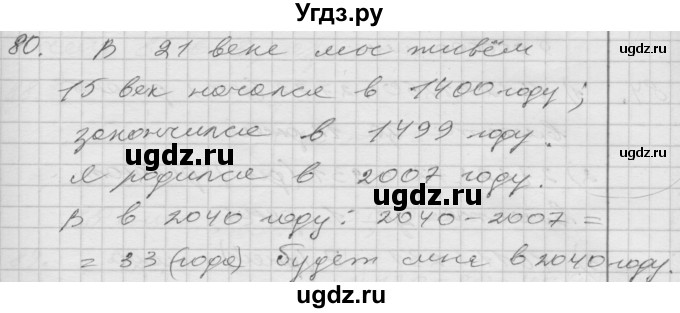 Угдз.ру
80. В 21 веке мы живём
15 век начался в 1400 году;
закончился в 1499 году.
Я родился в 2007 году.
В в 2040 году: 2040-2007=
=33 (года) будет мне в 2040 году.
ugdz.ru
ugdz.ru
ugdz.ru
ugdz.ru
ugdz.ru
ugdz.ru
ugdz.ru
ugdz.ru